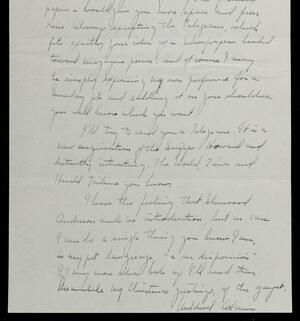 papers – would give you more space and free
rein. Always excepting the Telegram, which
fits exactly your idea of a newspaper headed
toward magazine power. And of course I may
be simply expressing my own preference for a
Sunday job and saddling it on your shoulders.
You will know which you want.
I'll try to send you a Telegram. It is a
new acquisition of the Scripps Howard and
distinctly interesting. The World, Times and
Herald Tribune you know.
I have the feeling that Sherwood
Anderson needs no introduction but in case
I can do a single thing you know I am,
in my pet language, "a su disposicion"
If any more show up I'll send them.
Meanwhile my Christmas greetings, of the gayest,
Mildred Adams